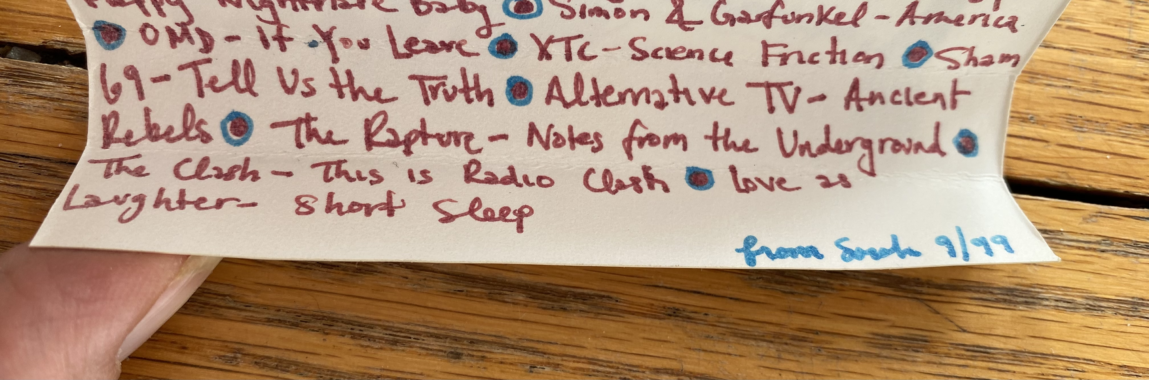 Happy Nightmare Baby Simon & Garfunkel - America
OMD - If You Leave XTC - Science Friction Sham
69 - Tell Us the Truth Alternative TV - Ancient
Rebels The Rapture - Notes from the Underground
The Clash - This is Radio Clash Love as
Laughter - Short Sleep
from Sarah 9/99